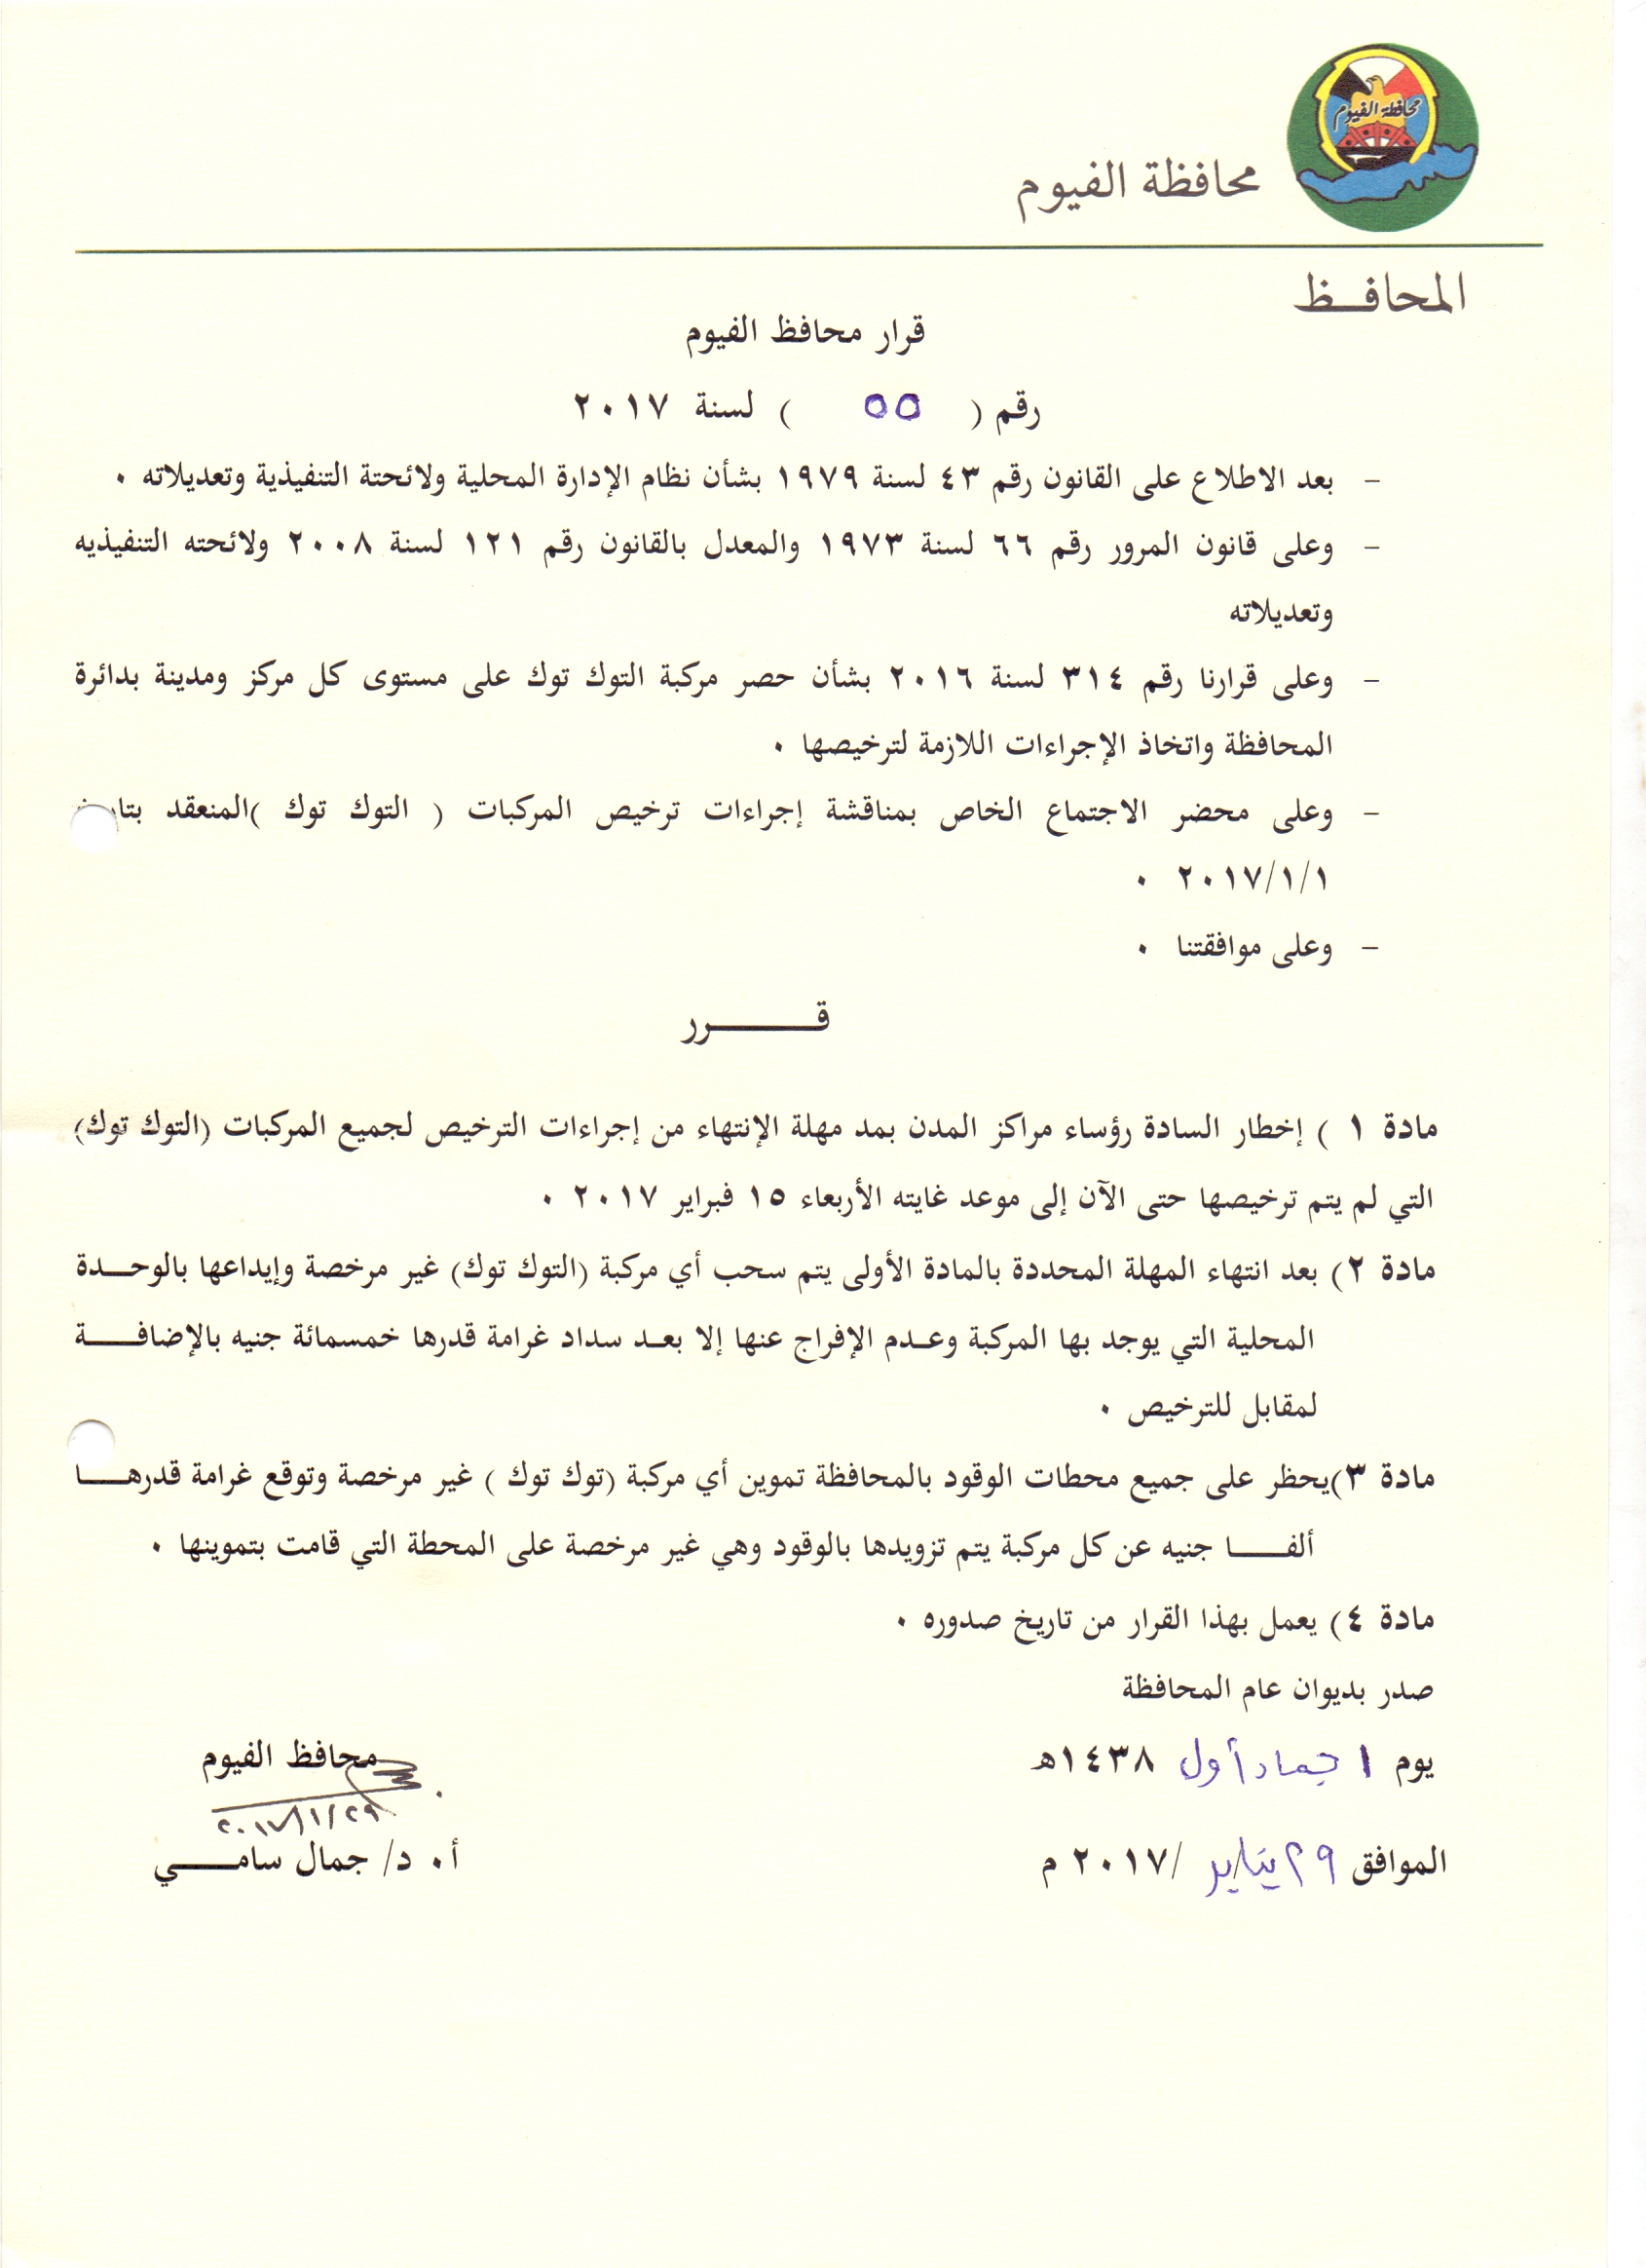 محافظة الفيوم
محافظة الفيوم
المحافـــظ
قرار محافظ الفيوم
رقم ( ٥٥ ) لسنة ٢٠١٧
- بعد الاطلاع على القانون رقم ٤٣ لسنة ١٩٧٩ بشأن نظام الإدارة المحلية ولائحتة التنفيذية وتعديلاته ٠
- وعلى قانون المرور رقم ٦٦ لسنة ١٩٧٣ والمعدل بالقانون رقم ١٢١ لسنة ٢٠٠٨ ولائحته التنفيذيه
وتعديلاته
- وعلى قرارنا رقم ٣١٤ لسنة ٢٠١٦ بشأن حصر مركبة التوك توك على مستوى كل مركز ومدينة بدائرة
المحافظة واتخاذ الإجراءات اللازمة لترخيصها ٠
- وعلى محضر الاجتماع الخاص بمناقشة إجراءات ترخيص المركبات ( التوك توك )المنعقد بتاريخ
٢٠١٧/١/١ ٠
- وعلى موافقتنا ٠
قـــــــرر
مادة ١ ) إخطار السادة رؤساء مراكز المدن بمد مهلة الإنتهاء من إجراءات الترخيص لجميع المركبات (التوك توك)
التي لم يتم ترخيصها حتى الآن إلى موعد غايته الأربعاء ١٥ فبراير ٢٠١٧ ٠
مادة ٢) بعد انتهاء المهلة المحددة بالمادة الأولى يتم سحب أي مركبة (التوك توك) غير مرخصة وإيداعها بالوحـــدة
المحلية التي يوجد بها المركبة وعـدم الإفراج عنها إلا بعـد سداد غرامة قدرها خمسمائة جنيه بالإضافـــــة
لمقابل للترخيص ٠
مادة ٣)يحظر على جميع محطات الوقود بالمحافظة تموين أي مركبة (توك توك ) غير مرخصة وتوقع غرامة قدرهـــــا
ألفـــــا جنيه عن كل مركبة يتم تزويدها بالوقود وهي غير مرخصة على المحطة التي قامت بتموينها ٠
مادة ٤) يعمل بهذا القرار من تاريخ صدوره ٠
صدر بديوان عام المحافظة
يوم ١ جماد أول ١٤٣٨هـ
الموافق ٢٩ يناير /٢٠١٧ م
محافظ الفيوم
٢٠١٧/١/٢٩
أ٠ د/ جمال سامـــــي